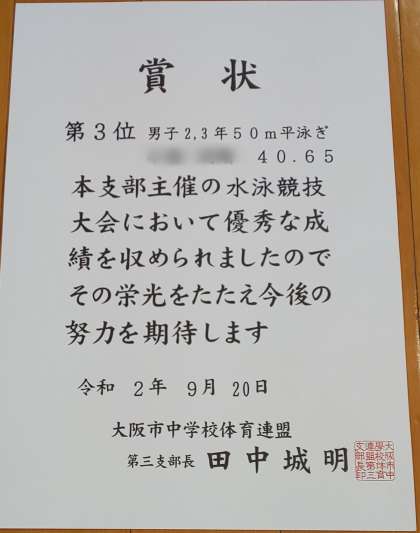 賞状
第3位 男子2,3年50m平泳ぎ
40.65
本支部主催の水泳競技
大会において優秀な成
績を収められましたので
その栄光をたたえ今後の
努力を期待します
令和 2年 9月 20日
大阪市中学校体育連盟
第三支部長 田中城明